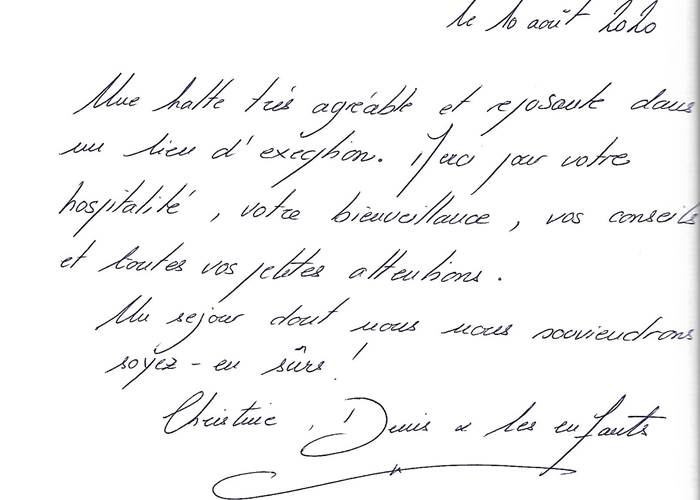 le 10 août 2020
Une halte très agréable et reposante dans
un lieu d'exception. Merci pour votre
hospitalité, votre bienveillance, vos conseils
et toutes vos petites attentions.
Un séjour dont nous nous souviendrons
soyez-en sûrs !
Christine, Denis & les enfants